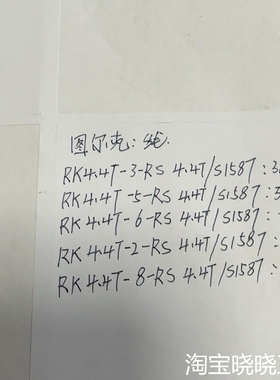 图尔克：线.
RK4.4T-3-RS 4.4T/S1587：3
RK4.4T-5-RS 4.4T/S1587：
RK4.4T-6-RS 4.4T/S1587：
RK4.4T-2-RS 4.4T/S1587：
RK4.4T-8-RS 4.4T/S1587：
淘宝晓晓